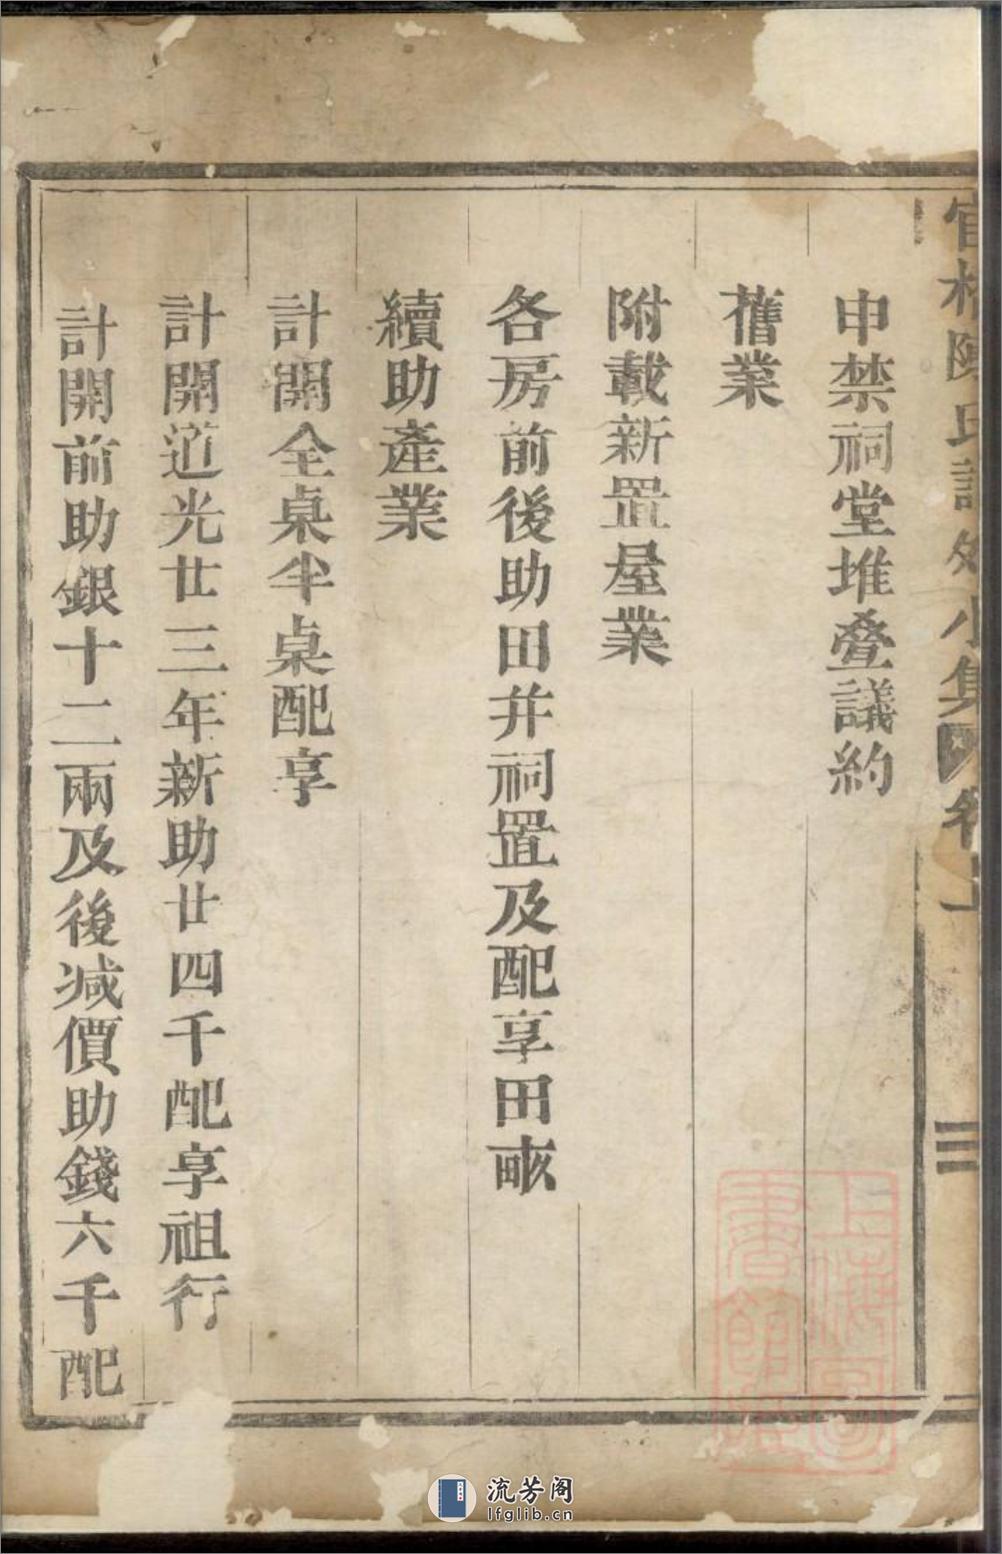 申禁祠堂堆疊議約
舊業
附載新置屋業
各房前後助田并祠置及配享田畝
續助產業
計開全桌半桌配享
計開道光廿三年新助廿四千配享祖行
計開前助銀十二兩及後減價助錢六千配
上海图
書館藏
流芳阁
lfglib.cn